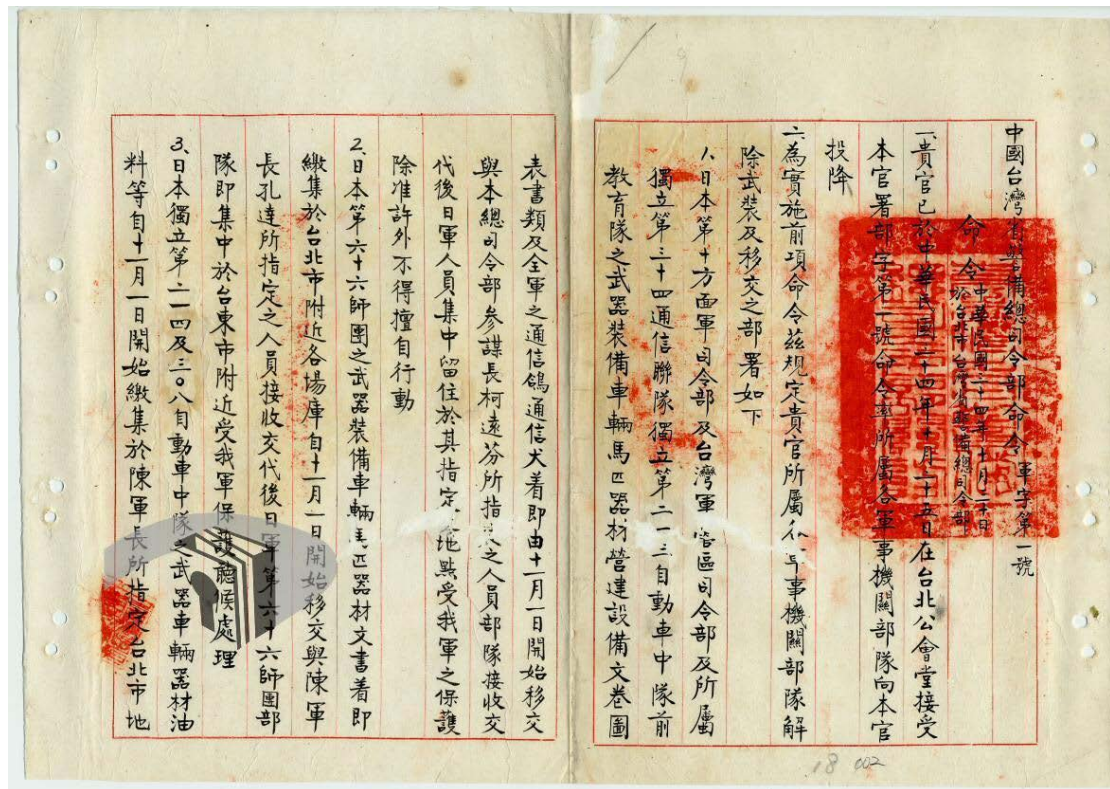 中國台灣省警備總司令部命令 軍字第一號
命令 中華民國三十四年十月三十日
於台北市台灣省警備總司令部
一、貴官已於中華民國三十四年十月二十五日在台北公會堂接受
本官署部字第一號命令率所屬各軍事機關部隊向本官
投降
二、為實施前項命令茲規定貴官所屬各軍事機關部隊解
除武裝及移交之部署如下
1、日本第十方面軍司令部及台灣軍管區司令部及所屬
獨立第三十四通信聯隊獨立第二一三自動車中隊前
教育隊之武器裝備車輛馬匹器材營建設備文卷圖
表書類及全軍之通信鴿通信犬着即由十一月一日開始移交
與本總司令部參謀長柯遠芬所指定之人員部隊接收交
代後日軍人員集中留住於其指定之地點受我軍之保護
除准許外不得擅自行動
2、日本第六十六師團之武器裝備車輛馬匹器材文書着即
繳集於台北市附近各場庫自十一月一日開始移交與陳軍
長孔達所指定之人員接收交代後日軍第六十六師團部
隊即集中於台東市附近受我軍保護聽候處理
3、日本獨立第二一四及三〇八自動車中隊之武器車輛器材油
料等自十一月一日開始繳集於陳軍長所指定台北市地
18 002